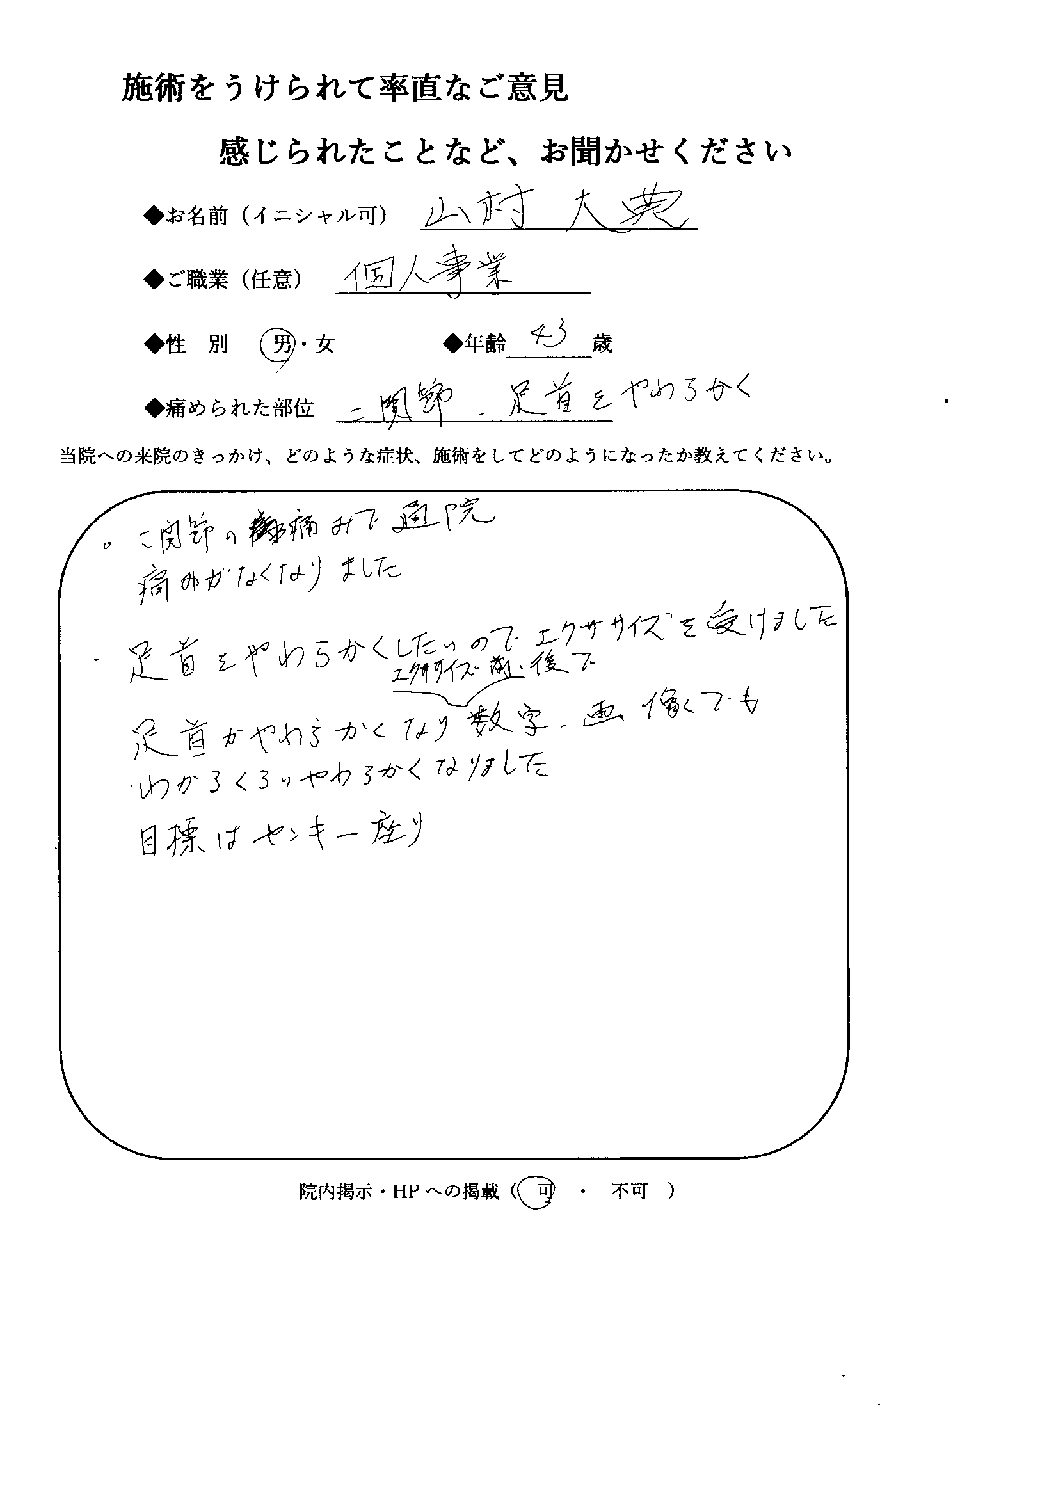 施術をうけられて率直なご意見
感じられたことなど、お聞かせください
◆お名前（イニシャル可） 山村 大典
◆ご職業（任意） 個人事業
◆性 別 男・女 ◆年齢 43 歳
◆痛められた部位 こ関節、足首をやわらかく
当院への来院のきっかけ、どのような症状、施術をしてどのようになったか教えてください。
。こ関節の痛みで通院
痛みがなくなりました
・足首をやわらかくしたいのでエクササイズを受けました
エクササイズ前・後で
足首がやわらかくなり数字、画像でも
わかるくらいやわらかくなりました
目標はヤンキー座り
院内掲示・HPへの掲載（ 可 ・ 不可 ）